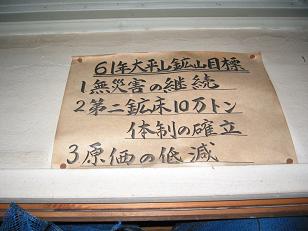 61年大平し鉱山目標
1無災害の継続
2第二鉱床10万トン
体制の確立
3原価の低減